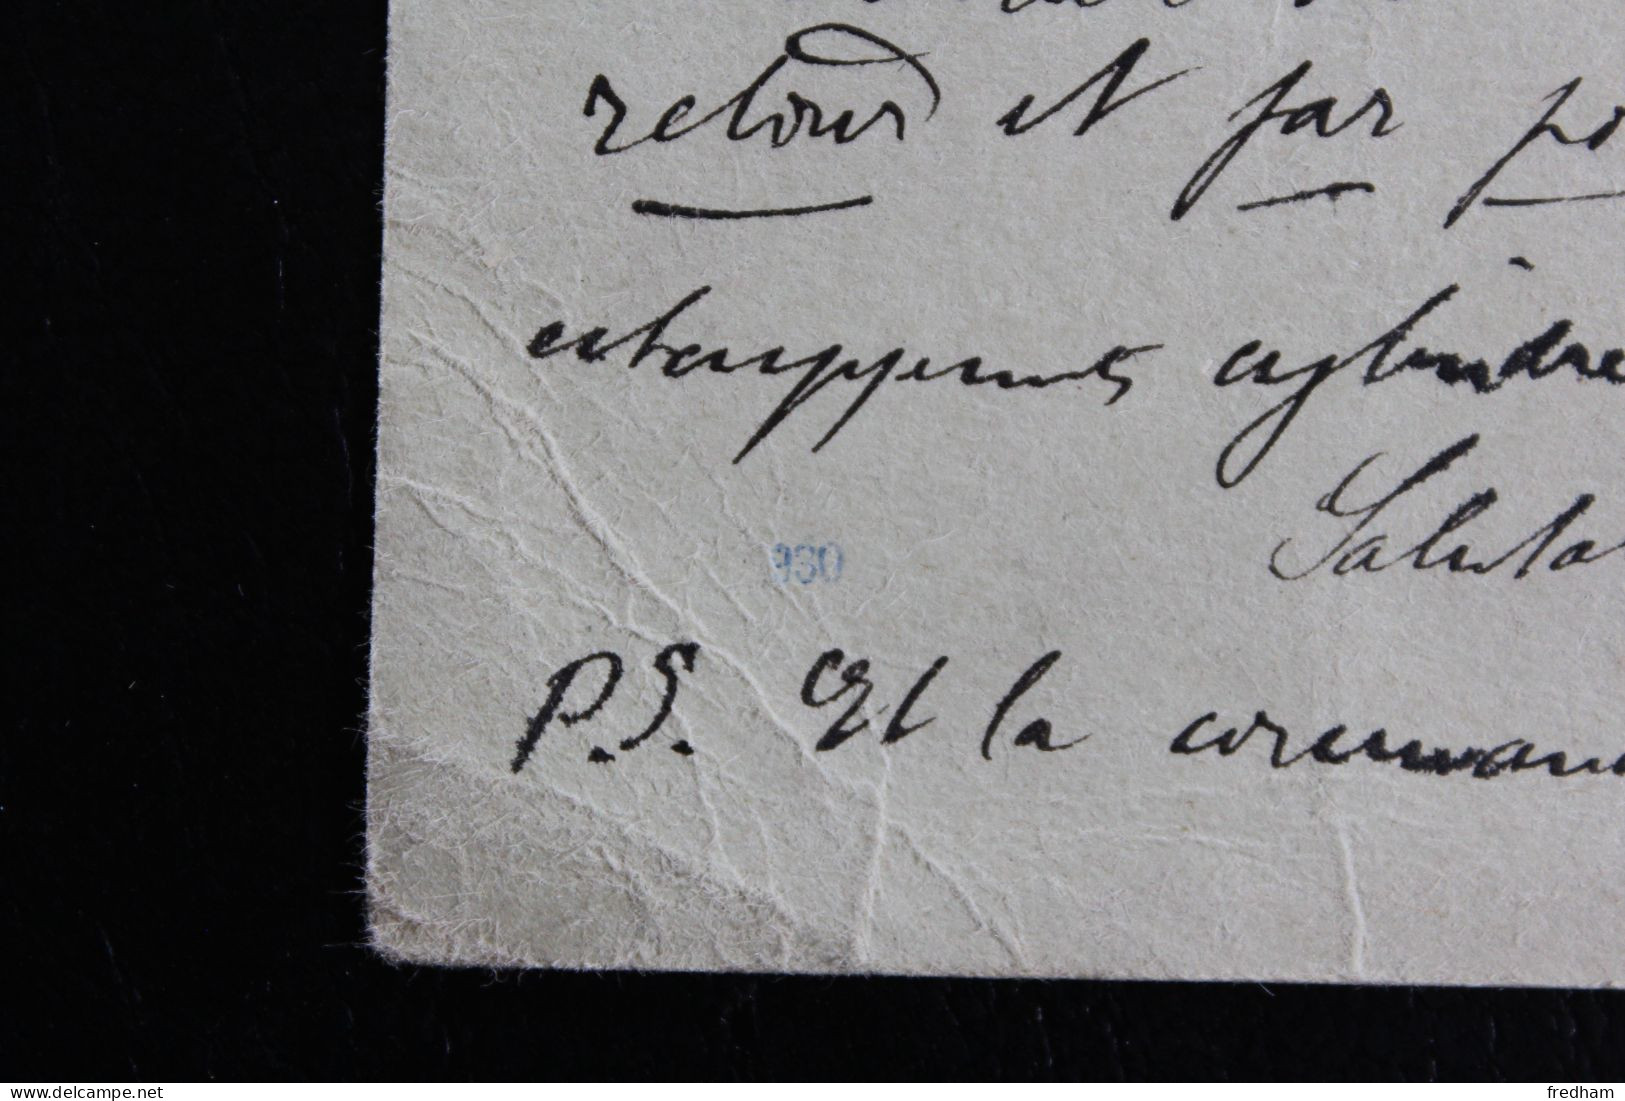 retour et par po
échappements cylindre
Saluta
930
P.S. Et la comman
delcampe.net
fredham